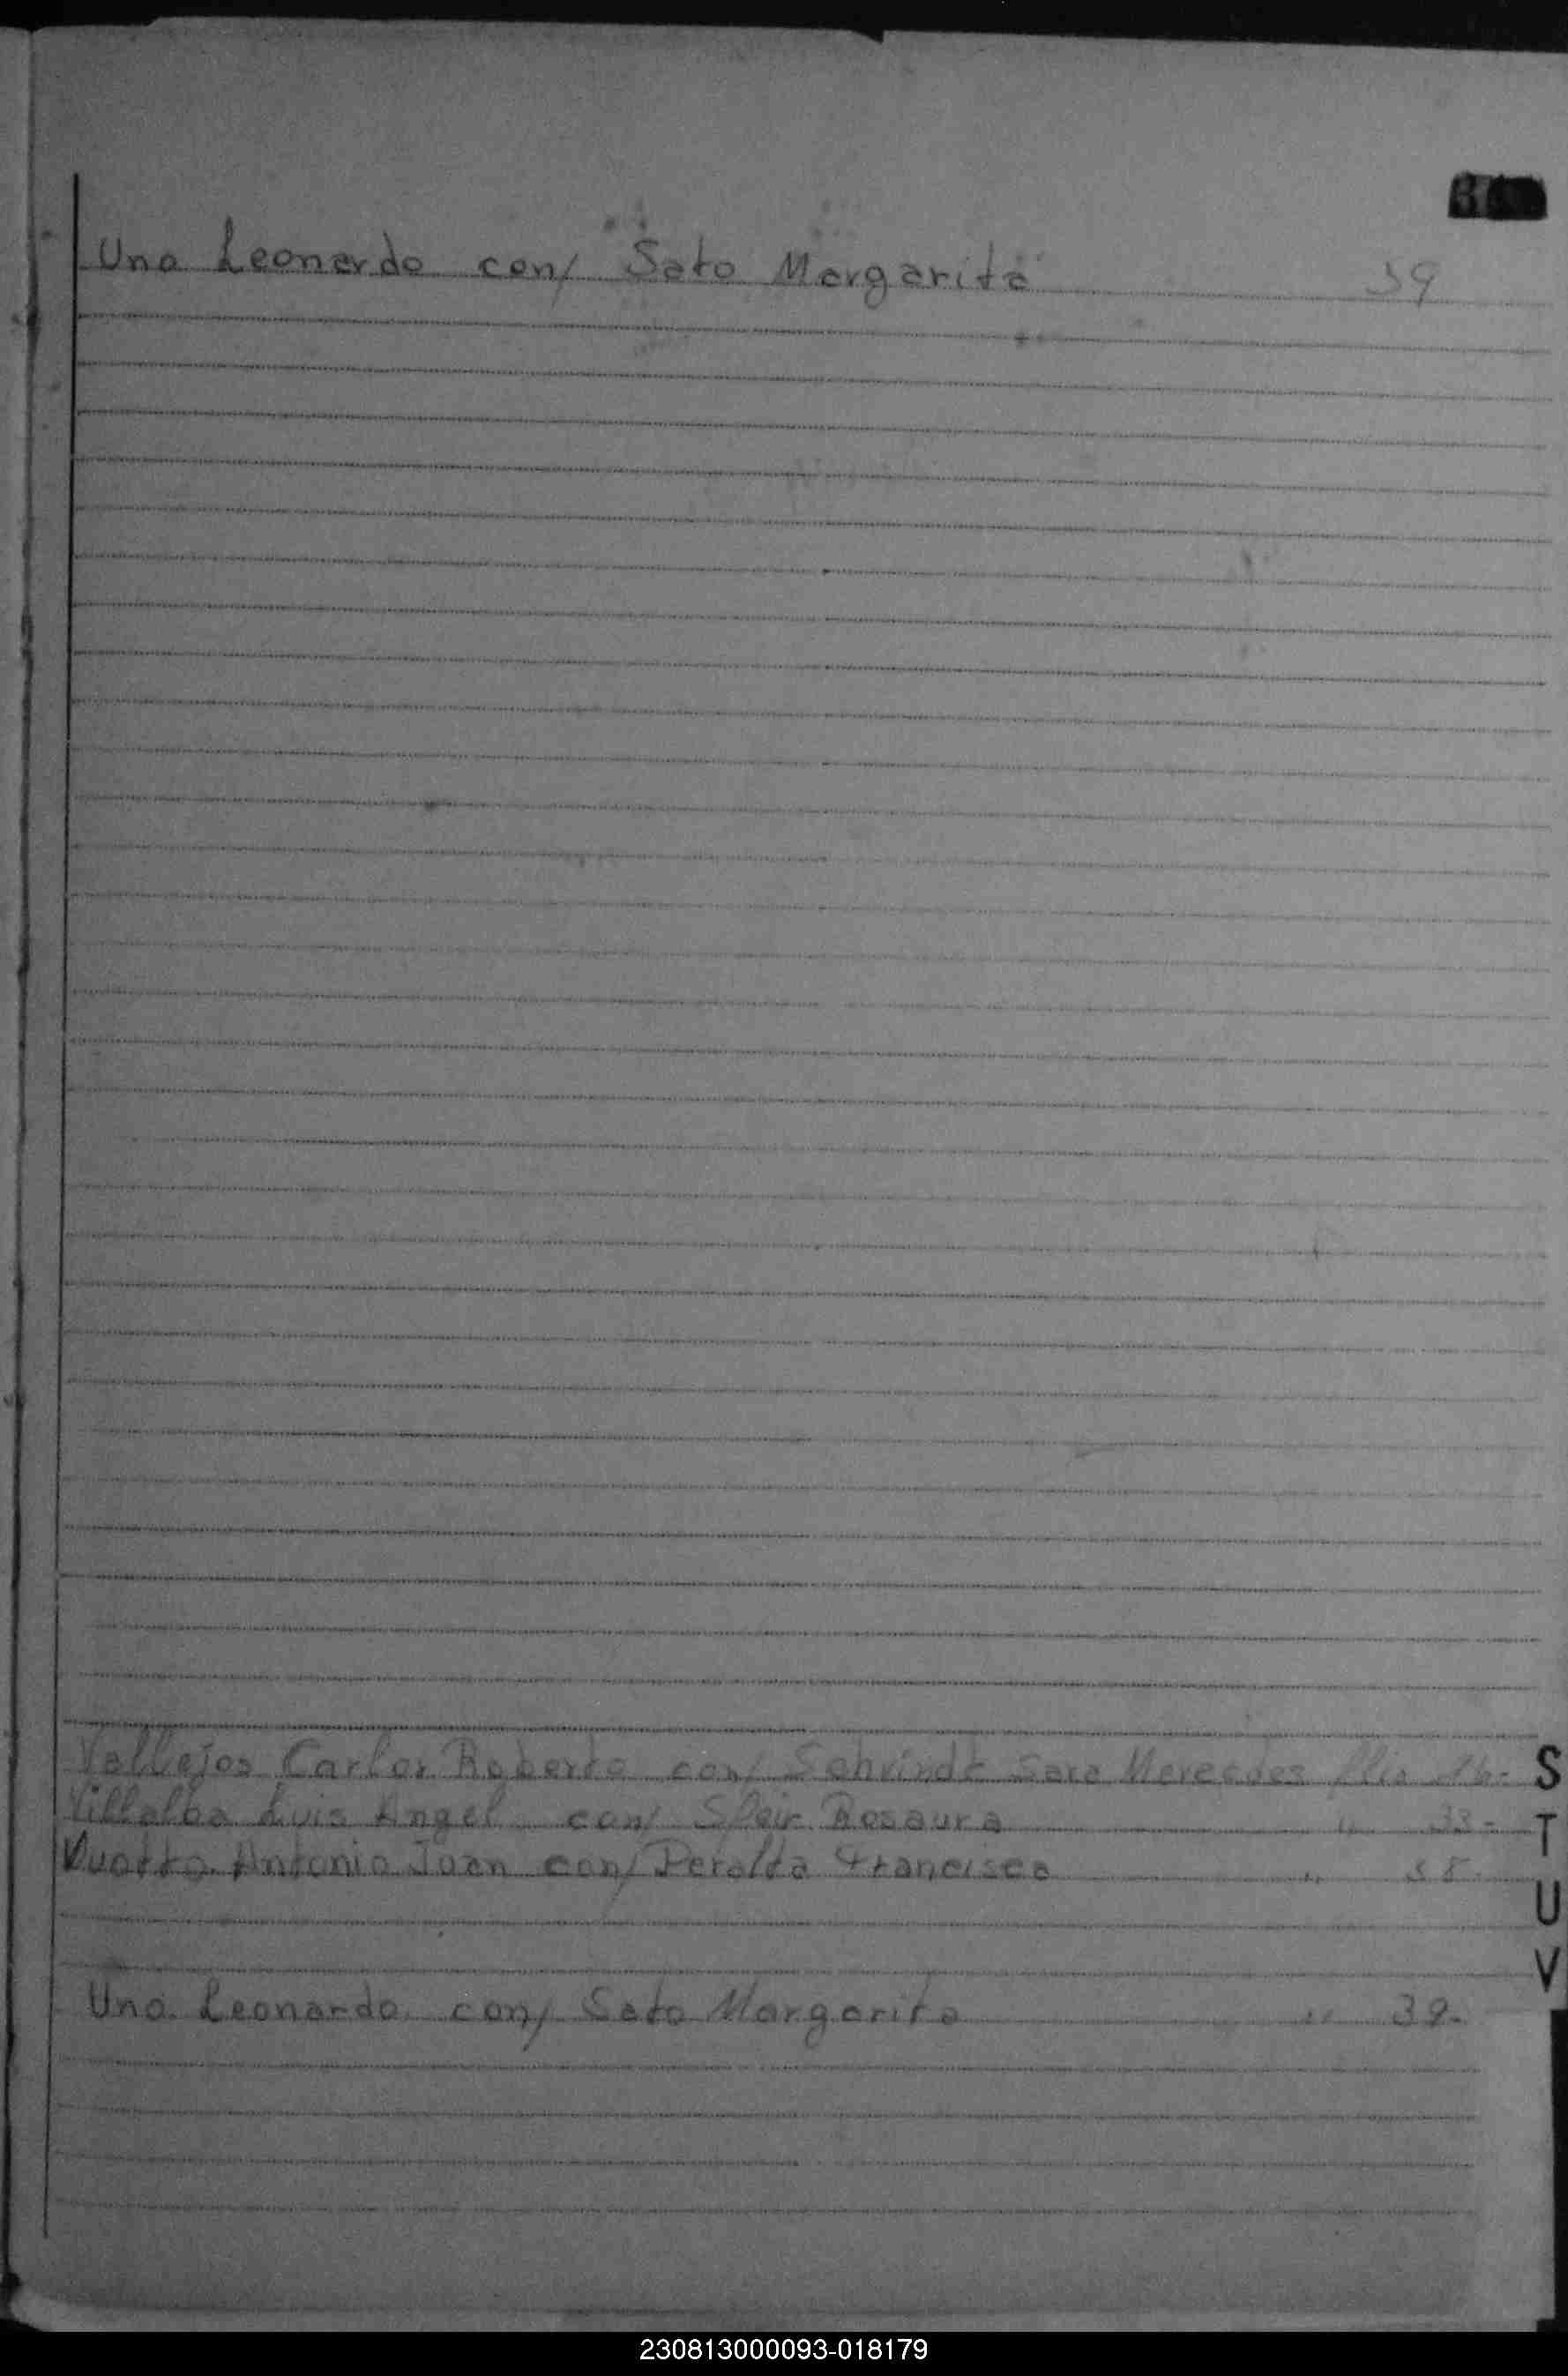 Uno Leonardo con/ Sato Margarita 39
Vallejos Carlos Roberto con/ Sara Mercedes flio 16- S
Villalba Luis Angel con/ Rosaura " 33- T
Vuotto Antonio Juan con/ Peralta Francisca " 38- U
V
Uno Leonardo con/ Sato Margarita " 39-
230813000093-018179